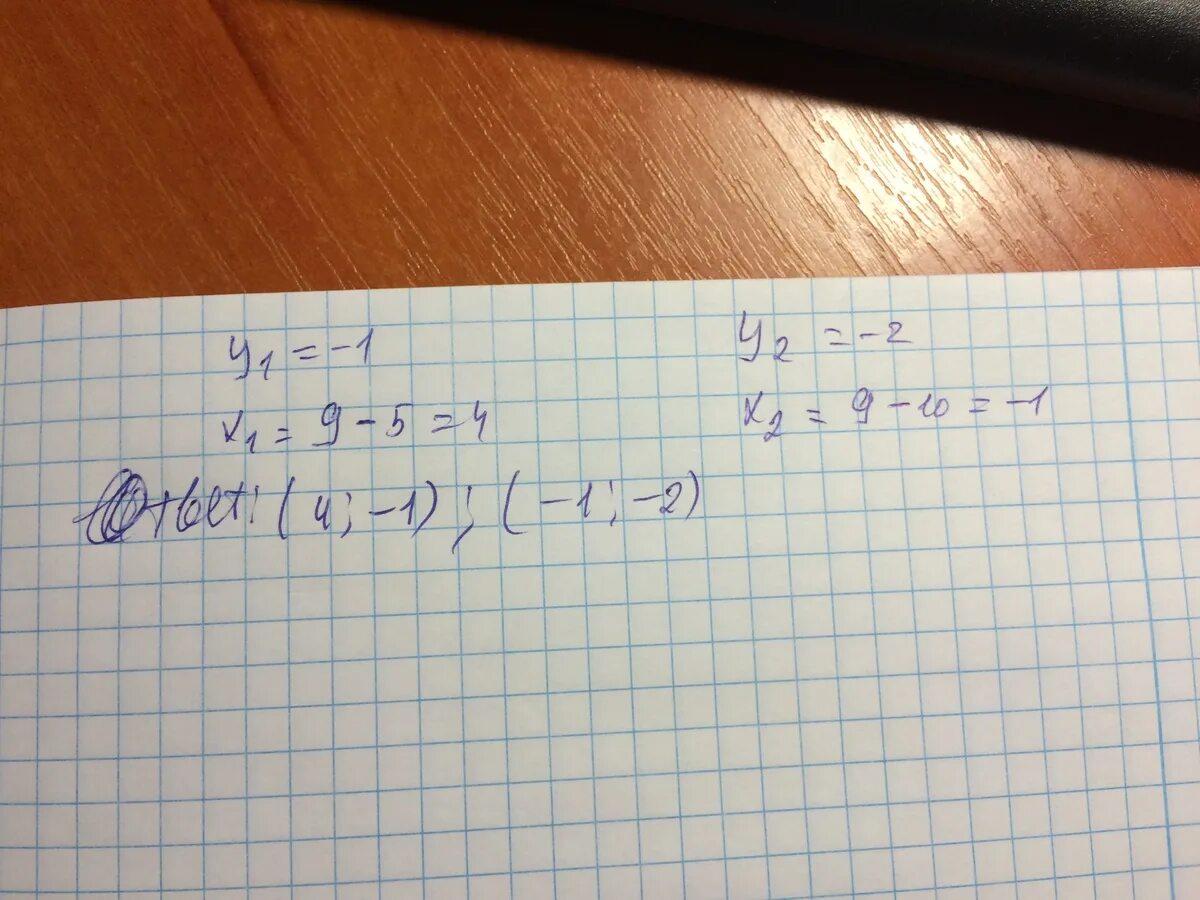 y₁ = -1 y₂ = -2
x₁ = 9 - 5 = 4 x₂ = 9 - 10 = -1
Ответ: (4; -1) ; (-1; -2)